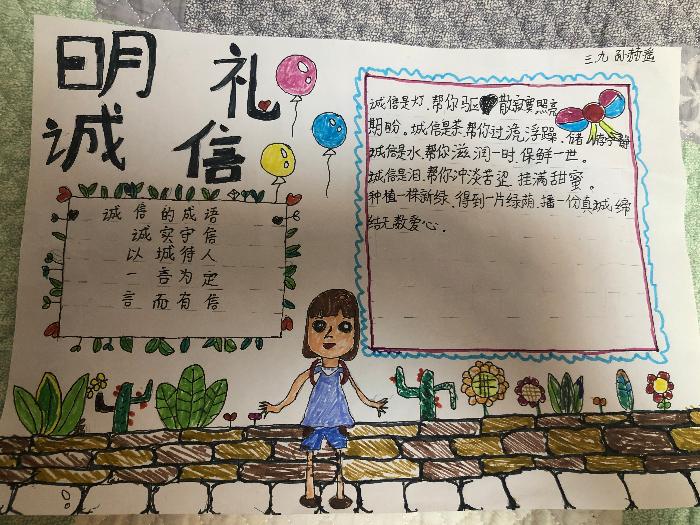 明礼
诚信
三、九 孙赫遥
诚信的成语
诚实守信
以诚待人
一言为定
言而有信
诚信是灯、帮你驱散寂寞照亮
期盼。诚信是茶、帮你过浇浮躁、储
诚信是水帮你滋润一时、保鲜一世。
诚信是泪、帮你冲淡苦涩、挂满甜蜜。
种植一株新绿、得到一片绿荫、播一份真诚、缔
结无数爱心.